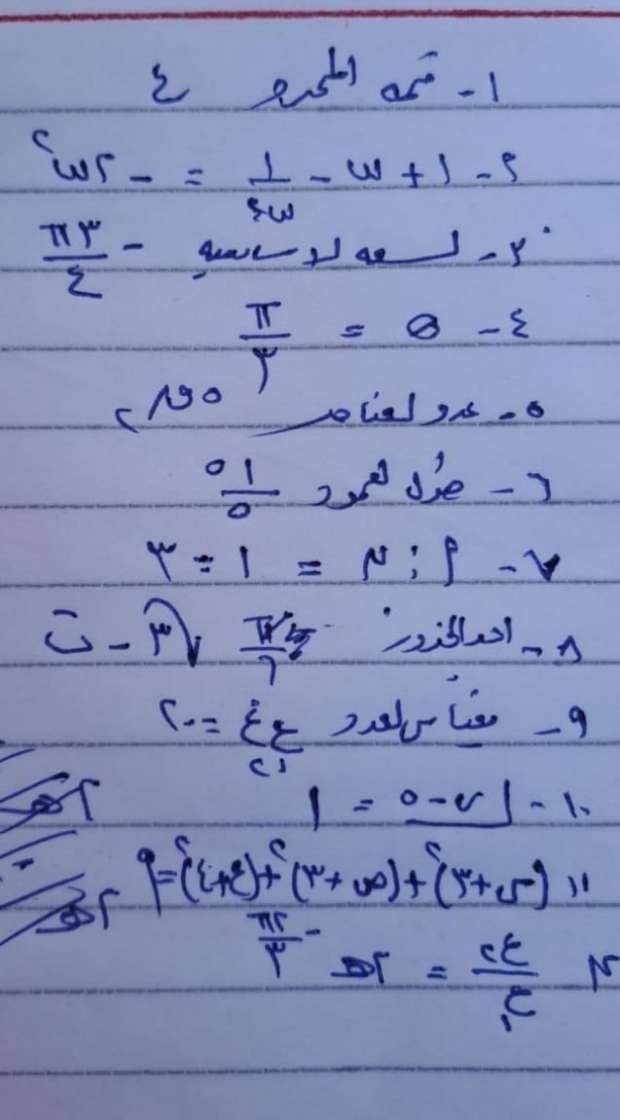 ١- قيمة المحدد ٤
٢- ١ + ω - ١/ω٢ = -٢ω٢
٣- السعه الاساسيه -٣π/٤
٤- θ = π/٣
٥- عدد العناصر
٦- طول العمود ١٥/٥
٧- م : ن = ١ : ٣
٨- احد الجذور √٣ - ت
٩- مقياس العدد ع١ ع٢ = ٢٠
١٠- = ١
١١ (س+٣)٢ + (ص+٣)٢ + (ع+٤)٢ = ٩
١٢ ع٢/ع١ = ٢هـ -٢π/٣